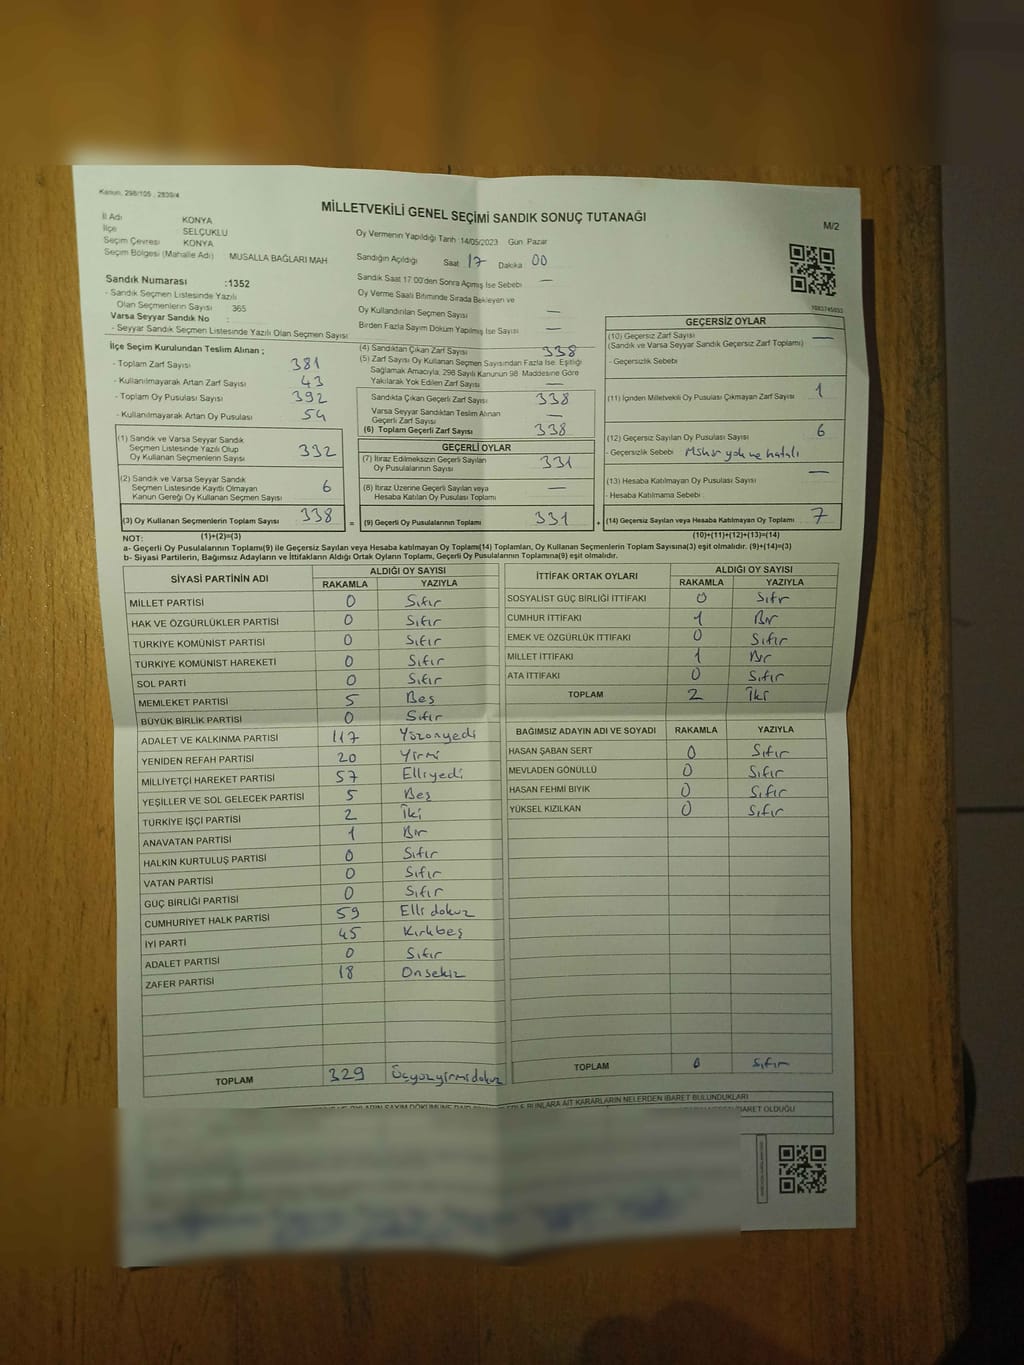 Kanun, 298/105 , 2839/4
MİLLETVEKİLİ GENEL SEÇİMİ SANDIK SONUÇ TUTANAĞI
M/2
İl Adı KONYA
İlçe SELÇUKLU
Seçim Çevresi KONYA
Seçim Bölgesi (Mahalle Adı) MUSALLA BAĞLARI MAH
Oy Vermenin Yapıldığı Tarih :14/05/2023 Gün Pazar
Sandığın Açıldığı Saat 17 Dakika 00
Sandık Numarası :1352
- Sandık Seçmen Listesinde Yazılı
Olan Seçmenlerin Sayısı 365
Varsa Seyyar Sandık No :
- Seyyar Sandık Seçmen Listesinde Yazılı Olan Seçmen Sayısı
Sandık Saat 17:00'den Sonra Açmış İse Sebebi —
Oy Verme Saati Bitiminde Sırada Bekleyen ve
Oy Kullandırılan Seçmen Sayısı —
Birden Fazla Sayım Döküm Yapılmış İse Sayısı —
İlçe Seçim Kurulundan Teslim Alınan ;
- Toplam Zarf Sayısı 381
- Kullanılmayarak Artan Zarf Sayısı 43
- Toplam Oy Pusulası Sayısı 392
- Kullanılmayarak Artan Oy Pusulası 54
(1) Sandık ve Varsa Seyyar Sandık
Seçmen Listesinde Yazılı Olup
Oy Kullanan Seçmenlerin Sayısı 332
(2) Sandık ve Varsa Seyyar Sandık
Seçmen Listesinde Kayıtlı Olmayan
Kanun Gereği Oy Kullanan Seçmen Sayısı 6
(3) Oy Kullanan Seçmenlerin Toplam Sayısı 338
(1)+(2)=(3)
(4) Sandıktan Çıkan Zarf Sayısı 338
(5) Zarf Sayısı Oy Kullanan Seçmen Sayısından Fazla İse, Eşitliği
Sağlamak Amacıyla, 298 Sayılı Kanunun 98. Maddesine Göre
Yakılarak Yok Edilen Zarf Sayısı —
Sandıkta Çıkan Geçerli Zarf Sayısı 338
Varsa Seyyar Sandıktan Teslim Alınan
Geçerli Zarf Sayısı —
(6) Toplam Geçerli Zarf Sayısı 338
GEÇERLİ OYLAR
(7) İtiraz Edilmeksizin Geçerli Sayılan
Oy Pusulalarının Sayısı 331
(8) İtiraz Üzerine Geçerli Sayılan veya
Hesaba Katılan Oy Pusulası Toplamı —
= (9) Geçerli Oy Pusulalarının Toplamı 331 +
GEÇERSİZ OYLAR
(10) Geçersiz Zarf Sayısı —
(Sandık ve Varsa Seyyar Sandık Geçersiz Zarf Toplamı)
- Geçersizlik Sebebi
(11) İçinden Milletvekili Oy Pusulası Çıkmayan Zarf Sayısı 1
(12) Geçersiz Sayılan Oy Pusulası Sayısı 6
- Geçersizlik Sebebi Mühür yok ve hatalı
(13) Hesaba Katılmayan Oy Pusulası Sayısı —
- Hesaba Katılmama Sebebi
(14) Geçersiz Sayılan veya Hesaba Katılmayan Oy Toplamı 7
(10)+(11)+(12)+(13)=(14)
NOT:
a- Geçerli Oy Pusulalarının Toplamı(9) ile Geçersiz Sayılan veya Hesaba katılmayan Oy Toplamı(14) Toplamları, Oy Kullanan Seçmenlerin Toplam Sayısına(3) eşit olmalıdır. (9)+(14)=(3)
b- Siyasi Partilerin, Bağımsız Adayların ve İttifakların Aldığı Oyların Toplamı, Geçerli Oy Pusulalarının Toplamına(9) eşit olmalıdır.
SİYASİ PARTİNİN ADI ALDIĞI OY SAYISI
RAKAMLA YAZIYLA
MİLLET PARTİSİ 0 Sıfır
HAK VE ÖZGÜRLÜKLER PARTİSİ 0 Sıfır
TÜRKİYE KOMÜNİST PARTİSİ 0 Sıfır
TÜRKİYE KOMÜNİST HAREKETİ 0 Sıfır
SOL PARTİ 0 Sıfır
MEMLEKET PARTİSİ 5 Beş
BÜYÜK BİRLİK PARTİSİ 0 Sıfır
ADALET VE KALKINMA PARTİSİ 117 Yüzonyedi
YENİDEN REFAH PARTİSİ 20 Yirmi
MİLLİYETÇİ HAREKET PARTİSİ 57 Elliyedi
YEŞİLLER VE SOL GELECEK PARTİSİ 5 Beş
TÜRKİYE İŞÇİ PARTİSİ 2 İki
ANAVATAN PARTİSİ 1 Bir
HALKIN KURTULUŞ PARTİSİ 0 Sıfır
VATAN PARTİSİ 0 Sıfır
GÜÇ BİRLİĞİ PARTİSİ 0 Sıfır
CUMHURİYET HALK PARTİSİ 59 Elli dokuz
İYİ PARTİ 45 Kırkbeş
ADALET PARTİSİ 0 Sıfır
ZAFER PARTİSİ 18 Onsekiz
TOPLAM 329 Üçyüzyirmidokuz
İTTİFAK ORTAK OYLARI ALDIĞI OY SAYISI
RAKAMLA YAZIYLA
SOSYALİST GÜÇ BİRLİĞİ İTTİFAKI 0 Sıfır
CUMHUR İTTİFAKI 1 Bir
EMEK VE ÖZGÜRLÜK İTTİFAKI 0 Sıfır
MİLLET İTTİFAKI 1 Bir
ATA İTTİFAKI 0 Sıfır
TOPLAM 2 İki
BAĞIMSIZ ADAYIN ADI VE SOYADI RAKAMLA YAZIYLA
HASAN ŞABAN SERT 0 Sıfır
MEVLADEN GÖNÜLLÜ 0 Sıfır
HASAN FEHMİ BIYIK 0 Sıfır
YÜKSEL KIZILKAN 0 Sıfır
TOPLAM 0 Sıfır
BUNLARA AİT KARARLARIN NELERDEN İBARET BULUNDUKLARI
İBARET OLDUĞU